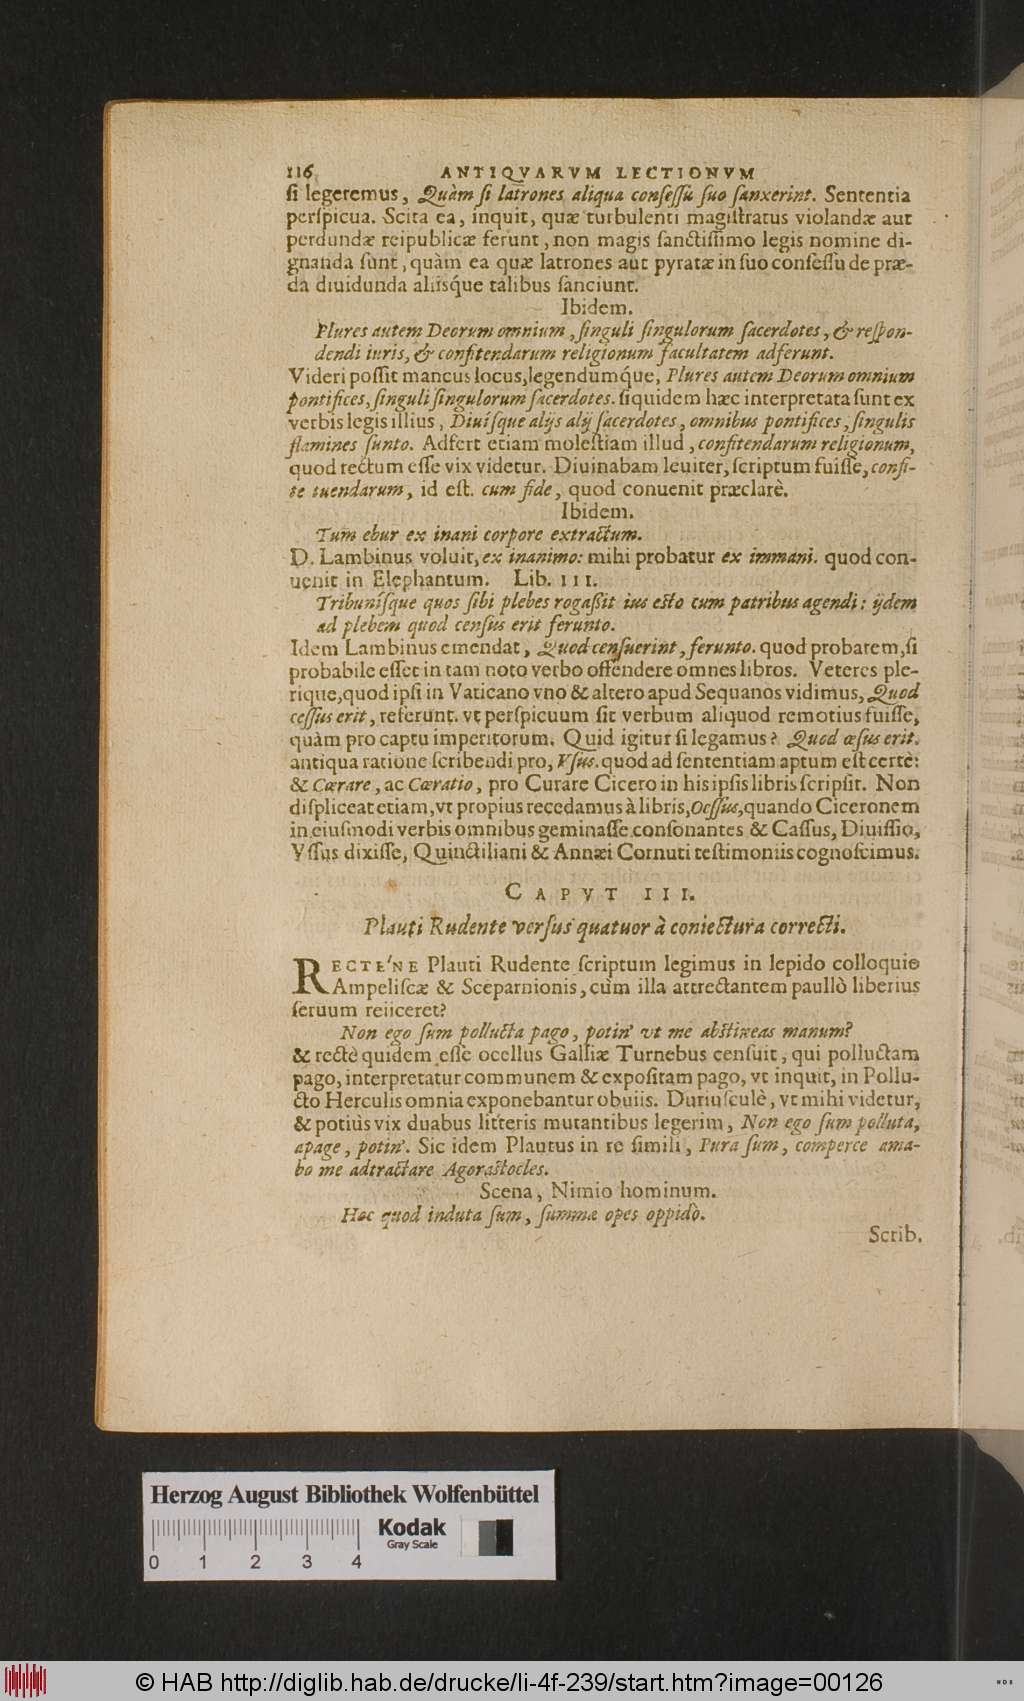 116 ANTIQVARVM LECTIONVM
ſi legeremus, Quàm ſi latrones aliqua conſeſſu ſuo ſanxerint. Sententia
perſpicua. Scita ea, inquit, quæ turbulenti magiſtratus violandæ aut
perdundæ reipublicæ ferunt, non magis ſanctiſſimo legis nomine di-
gnanda ſunt, quàm ea quæ latrones aut pyratæ in ſuo conſeſſu de præ-
da diuidunda aliíſq́ue talibus ſanciunt.
Ibidem.
Plures autem Deorum omnium, ſinguli ſingulorum ſacerdotes, & reſpon-
dendi iuris, & confitendarum religionum facultatem adferunt.
Videri poſſit mancus locus, legendumq́ue, Plures autem Deorum omnium
pontifices, ſinguli ſingulorum ſacerdotes. ſiquidem hæc interpretata ſunt ex
verbis legis illius, Diuíſque alijs alij ſacerdotes, omnibus pontifices, ſingulis
flamines ſunto. Adfert etiam moleſtiam illud, confitendarum religionum,
quod rectum eſſe vix videtur. Diuinabam leuiter, ſcriptum fuiſſe, confi-
te tuendarum, id eſt. cum fide, quod conuenit præclarè.
Ibidem.
Tum ebur ex inani corpore extractum.
D. Lambinus voluit, ex inanimo: mihi probatur ex immani. quod con-
uenit in Elephantum. Lib. III.
Tribuníſque quos ſibi plebes rogaßit ius eſto cum patribus agendi: ijdem
ad plebem quod cenſus erit ferunto.
Idem Lambinus emendat, Quod cenſuerint, ferunto. quod probarem, ſi
probabile eſſet in tam noto verbo offendere omnes libros. Veteres ple-
rique, quod ipſi in Vaticano vno & altero apud Sequanos vidimus, Quod
ceſſus erit, referunt. vt perſpicuum ſit verbum aliquod remotius fuiſſe,
quàm pro captu imperitorum. Quid igitur ſi legamus? Quod œſus erit.
antiqua ratione ſcribendi pro, Vſus. quod ad ſententiam aptum eſt certè:
& Cœrare, ac Cœratio, pro Curare Cicero in his ipſis libris ſcripſit. Non
diſpliceat etiam, vt propius recedamus à libris, Oeſſus, quando Ciceronem
in eiuſmodi verbis omnibus geminaſſe conſonantes & Caſſus, Diuiſſio,
Vſſus dixiſſe, Quinctiliani & Annæi Cornuti teſtimoniis cognoſcimus.
CAPVT III.
Plauti Rudente verſus quatuor à coniectura correcti.
RECTE'NE Plauti Rudente ſcriptum legimus in lepido colloquio
Ampeliſcæ & Sceparnionis, cùm illa attrectantem paullò liberius
ſeruum reiiceret?
Non ego ſum pollucta pago, potin' vt me abſtineas manum?
& rectè quidem eſſe ocellus Galliæ Turnebus cenſuit, qui polluctam
pago, interpretatur communem & expoſitam pago, vt inquit, in Pollu-
cto Herculis omnia exponebantur obuiis. Duriuſculè, vt mihi videtur,
& potiùs vix duabus litteris mutantibus legerim, Non ego ſum polluta,
apage, potin'. Sic idem Plautus in re ſimili, Pura ſum, comperce ama-
bo me adtractare Agoraſtocles.
Scena, Nimio hominum.
Hoc quod induta ſum, ſummæ opes oppidò.
Scrib.
Herzog August Bibliothek Wolfenbüttel
Kodak
Gray Scale
0 1 2 3 4
© HAB http://diglib.hab.de/drucke/li-4f-239/start.htm?image=00126